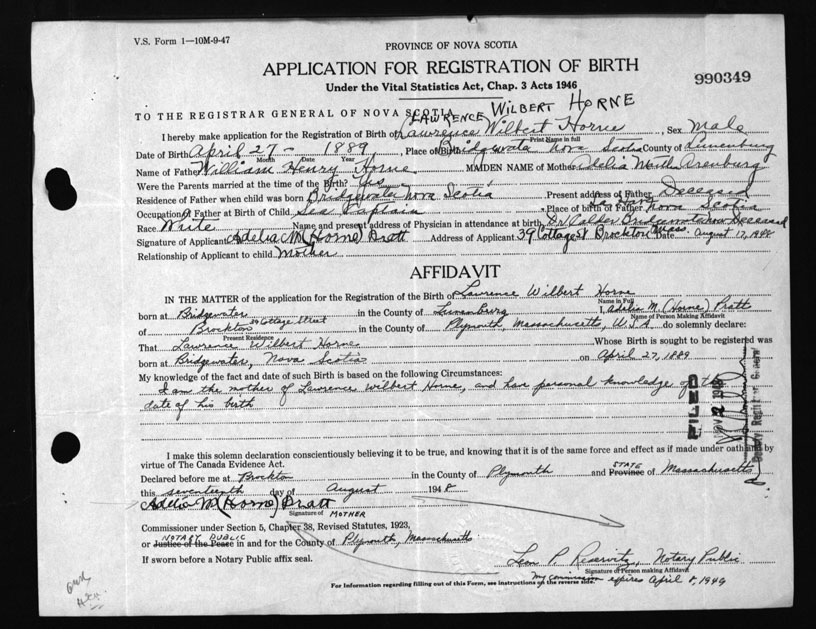 V.S. Form 1—10M-9-47
PROVINCE OF NOVA SCOTIA
APPLICATION FOR REGISTRATION OF BIRTH
990349
Under the Vital Statistics Act, Chap. 3 Acts 1946
LAWRENCE WILBERT HORNE
TO THE REGISTRAR GENERAL OF NOVA SCOTIA
I hereby make application for the Registration of Birth of Lawrence Wilbert Horne, Sex Male
Print Name in full
Date of Birth April 27 - 1889, Place of Birth Bridgewater Nova Scotia County of Lunenburg
Month Date Year
Name of Father William Henry Horne MAIDEN NAME of Mother Adelia Arenburg
Were the Parents married at time of the Birth? Yes Present address of Father Deceased
Residence of Father when child was born Bridgewater Nova Scotia, Place of birth of Father La Have Nova Scotia
Occupation of Father at Birth of Child Sea Captain
Race White Name and present address of Physician in attendance at birth, Dr Bridgewater now Deceased
Signature of Applicant Adelia M (Horne) Pratt Address of Applicant 39 Cottage St Brockton Mass. Date August 17, 1948
Relationship of Applicant to child Mother
AFFIDAVIT
IN THE MATTER of the application for the Registration of the Birth of Lawrence Wilbert Horne
Name in Full
born at Bridgewater in the County of Lunenburg I, Adelia M. (Horne) Pratt
Name of Person Making Affidavit
of Brockton 39 Cottage Street in the County of Plymouth Massachusetts, U.S.A. do solemnly declare:
Present Residence
That Lawrence Wilbert Horne Whose Birth is sought to be registered was
born at Bridgewater, Nova Scotia on April 27, 1889
My knowledge of the fact and date of such Birth is based on the following Circumstances:
I am the mother of Lawrence Wilbert Horne, and have personal knowledge of the
date of his birth
FILED
NOV 12 1948
I make this solemn declaration conscientiously believing it to be true, and knowing that it is of the same force and effect as if made under oath and by
virtue of The Canada Evidence Act.
Declared before me at Brockton in the County of Plymouth and Province STATE of Massachusetts
this day of August 1948
Adelia M (Horne) Pratt
Signature of MOTHER
Commissioner under Section 5, Chapter 38, Revised Statutes, 1923,
NOTARY PUBLIC
or Justice of the Peace in and for the County of Plymouth, Massachusetts
If sworn before a Notary Public affix seal.
Leon P. Reservitz, Notary Public
Signature of Person making Affidavit
My commission expires April 8, 1949
For Information regarding filling out of this Form, see instructions on the reverse side.